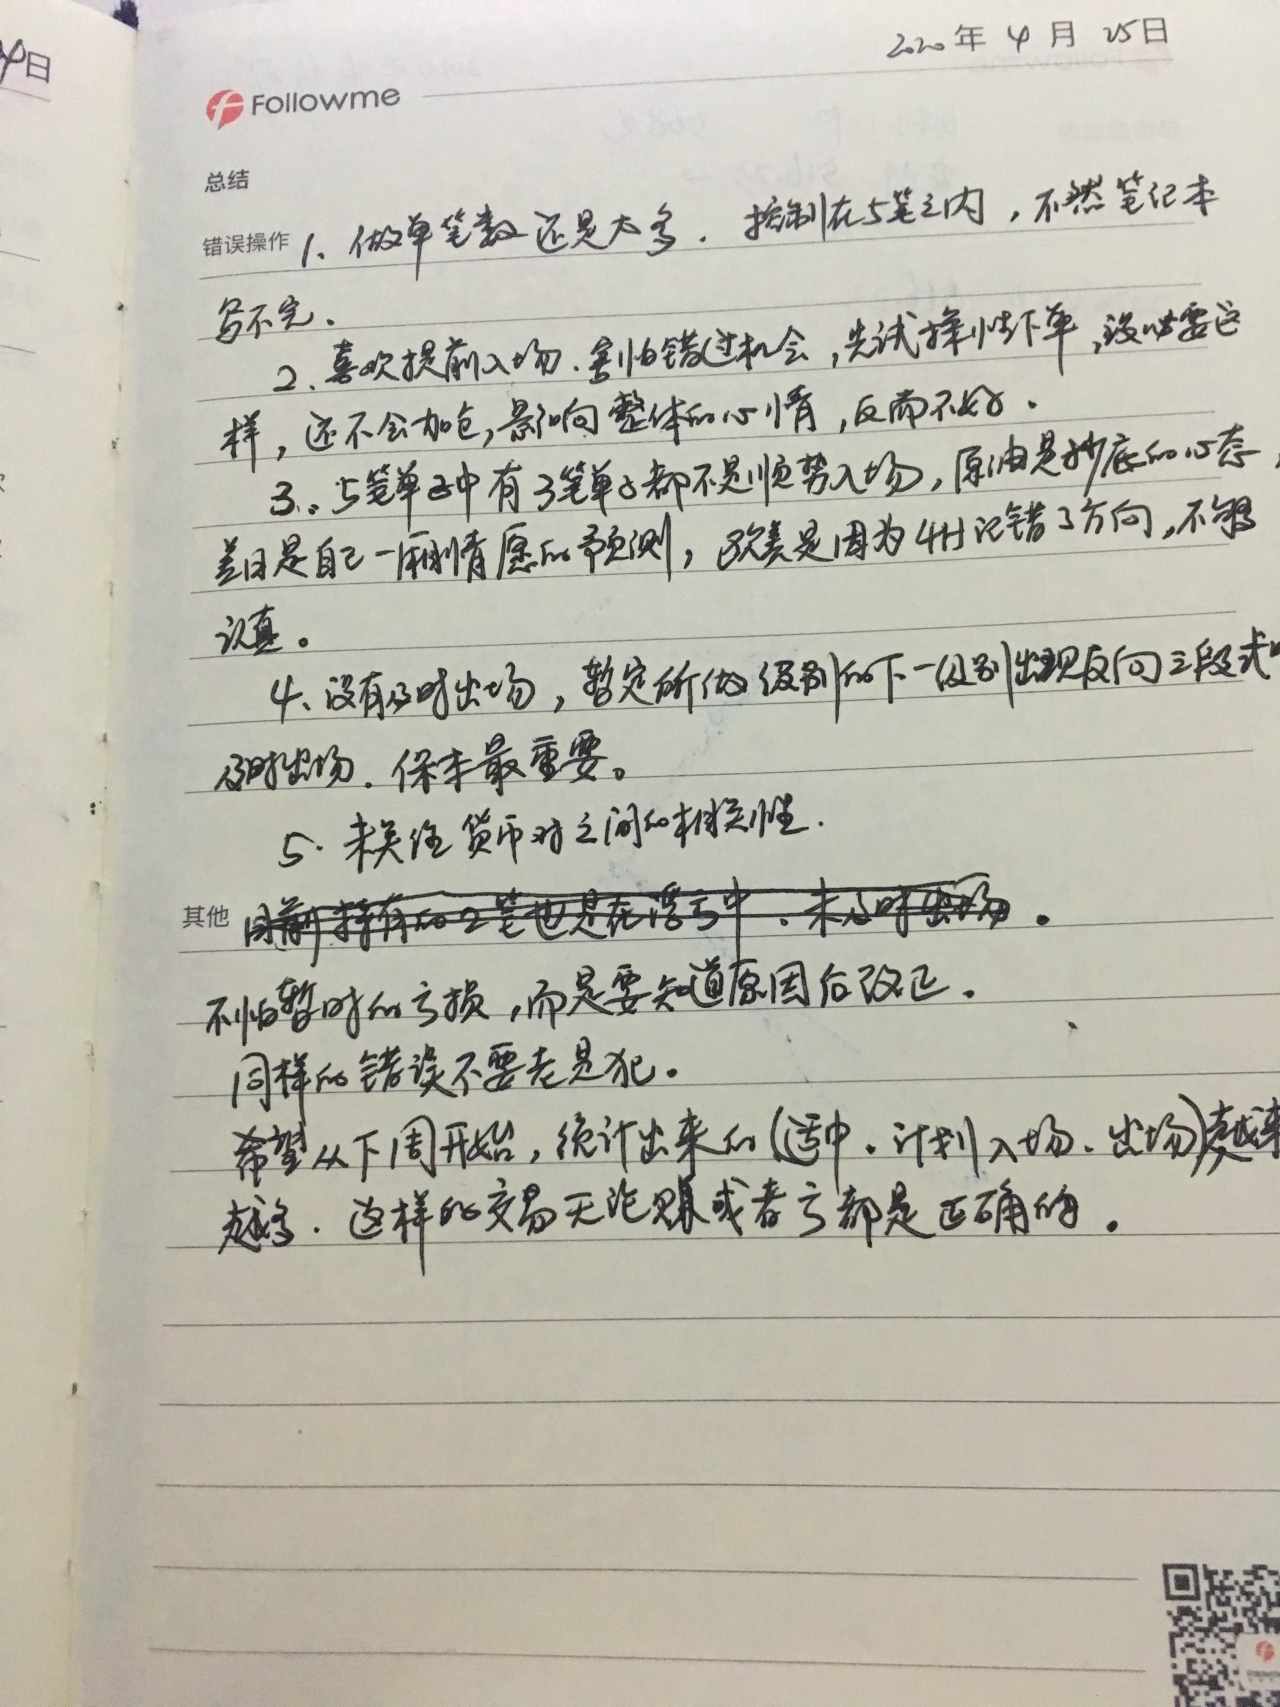 2020年4月25日
Followme
总结
错误操作 1、做单笔数还是太多.控制在5笔之内,不然笔记本
写不完.
2.喜欢提前入场.害怕错过机会,先试探性下单,没必要这
样,还不会加仓,影响整体的心情,反而不好.
3.。5笔单子中有3笔单子都不是顺势入场,原油是抄底的心态,
美日是自己一厢情愿的预测,欧美是因为4H记错了方向,不够
认真。
4、没有及时出场,暂定所做级别的下一级别出现反向三段式
及时出场.保本最重要。
5.未关注货币对之间的相关性.
其他 目前持有的2笔也是在浮亏中.未及时出场。
不怕暂时的亏损,而是要知道原因后改正.
同样的错误不要老是犯.
希望从下周开始,统计出来的(适中.计划入场.出场)越来
越多.这样的交易无论赚或者亏都是正确的.
日